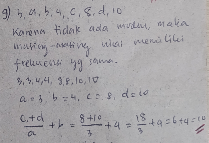 9) 3, a, b, 4, c, 8, d, 10
Karena tidak ada modus, maka
masing-masing nilai memiliki
frekuensi yg sama.
3, 3, 4, 4, 8, 8, 10, 10
a = 3, b = 4, c = 8, d = 10
c+d/a + b = 8+10/3 + 4 = 18/3 + 4 = 6+4 = 10